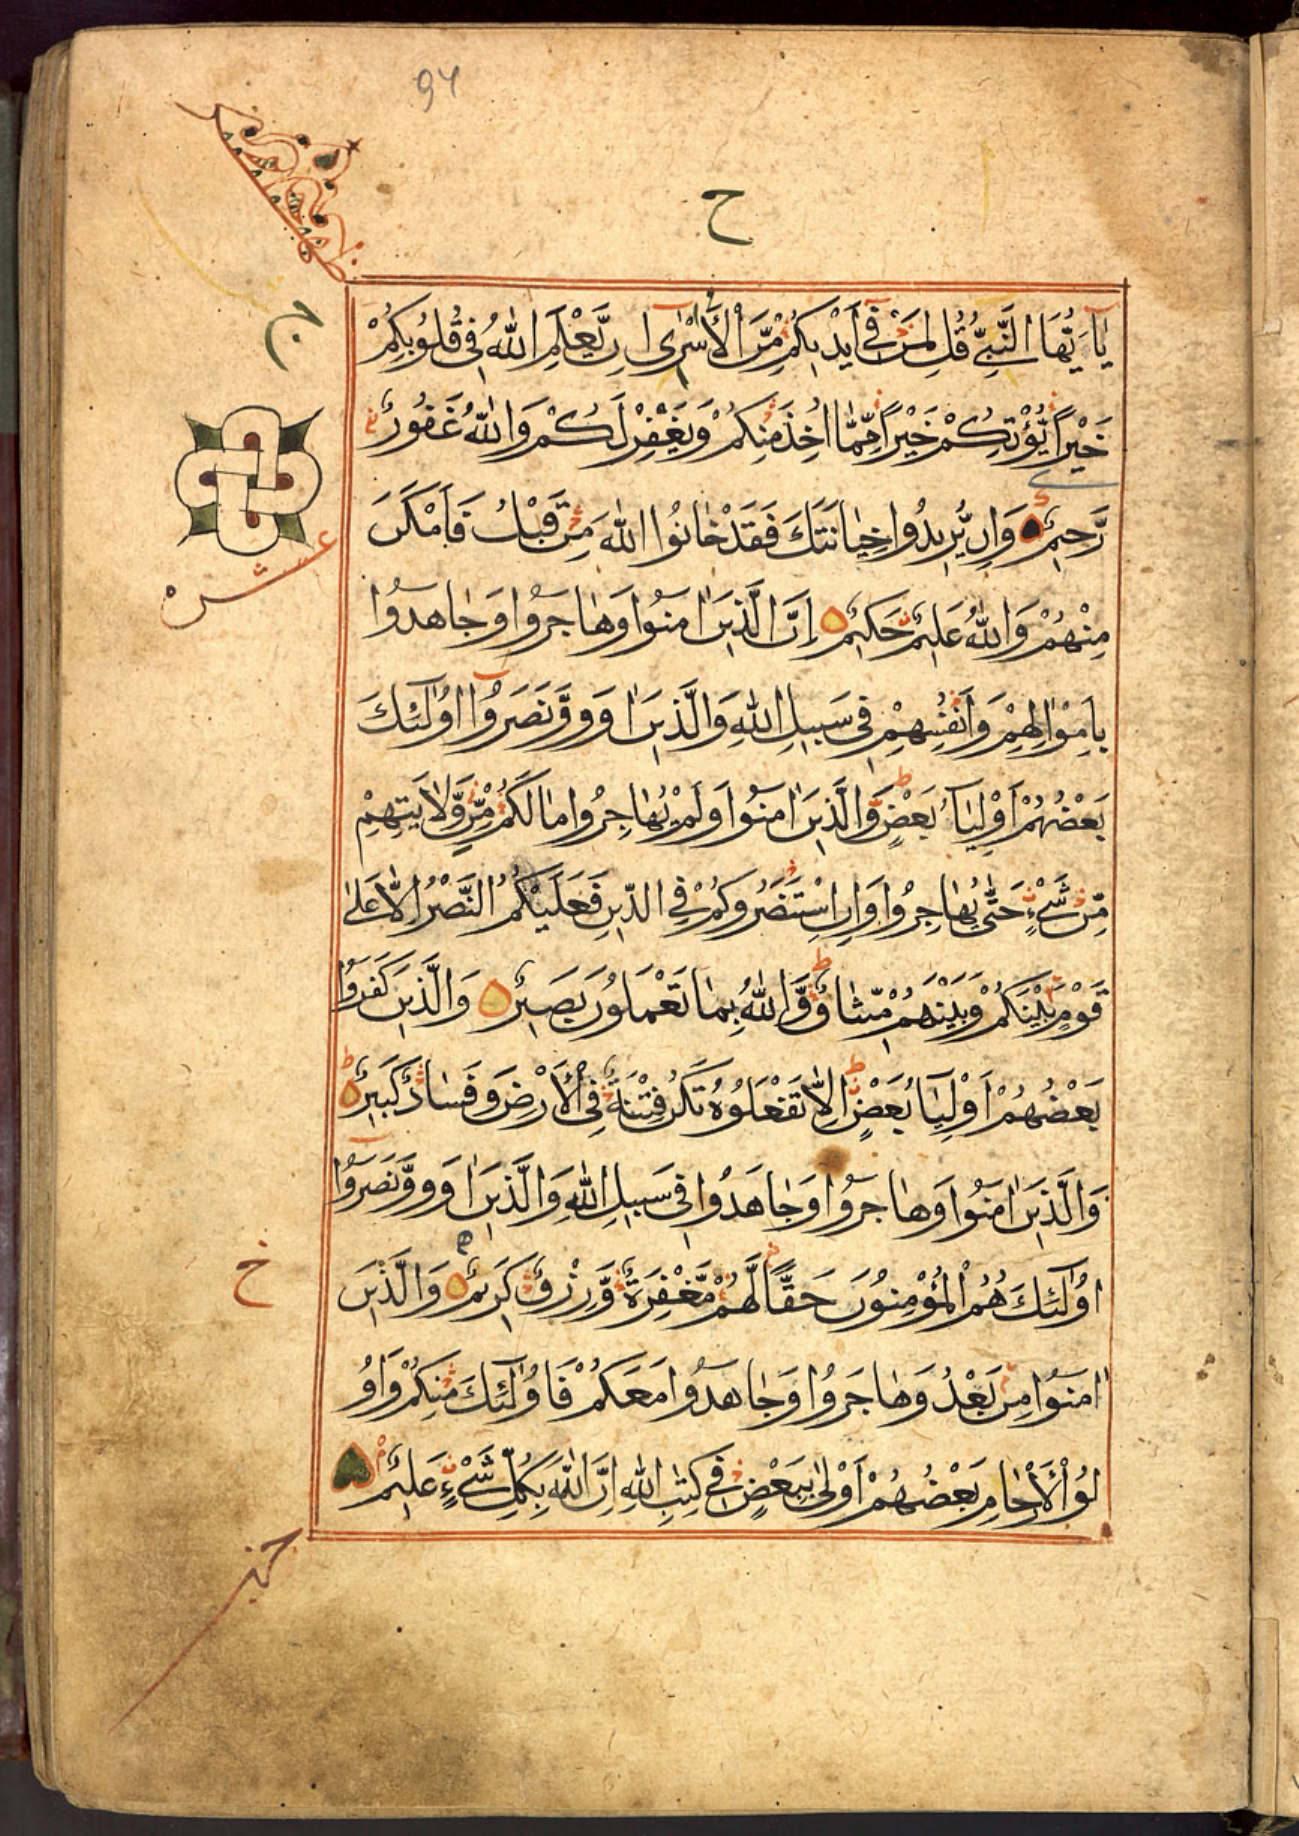 94
ح
ج
يَا أَيُّهَا النَّبِيُّ قُلْ لِمَنْ فِي أَيْدِيكُمْ مِّنَ الْأَسْرَى إِنْ يَّعْلَمِ اللّٰهُ فِي قُلُوبِكُمْ
خَيْرًا يُّؤْتِكُمْ خَيْرًا مِّمَّا أُخِذَ مِنْكُمْ وَيَغْفِرْ لَكُمْ وَاللّٰهُ غَفُورٌ
رَّحِيمٌ وَإِنْ يُّرِيدُوا خِيَانَتَكَ فَقَدْ خَانُوا اللّٰهَ مِنْ قَبْلُ فَأَمْكَنَ
عشر
مِنْهُمْ وَاللّٰهُ عَلِيمٌ حَكِيمٌ إِنَّ الَّذِينَ اٰمَنُوا وَهَاجَرُوا وَجَاهَدُوا
بِأَمْوَالِهِمْ وَأَنْفُسِهِمْ فِي سَبِيلِ اللّٰهِ وَالَّذِينَ اٰوَوْا وَّنَصَرُوا أُولٰئِكَ
بَعْضُهُمْ أَوْلِيَاءُ بَعْضٍ وَّالَّذِينَ اٰمَنُوا وَلَمْ يُهَاجِرُوا مَا لَكُمْ مِّنْ وَّلَايَتِهِمْ
مِّنْ شَيْءٍ حَتّٰى يُهَاجِرُوا وَإِنِ اسْتَنْصَرُوكُمْ فِي الدِّينِ فَعَلَيْكُمُ النَّصْرُ إِلَّا عَلٰى
قَوْمٍ بَيْنَكُمْ وَبَيْنَهُمْ مِّيثَاقٌ وَّاللّٰهُ بِمَا تَعْمَلُونَ بَصِيرٌ وَالَّذِينَ كَفَرُوا
بَعْضُهُمْ أَوْلِيَاءُ بَعْضٍ إِلَّا تَفْعَلُوهُ تَكُنْ فِتْنَةٌ فِي الْأَرْضِ وَفَسَادٌ كَبِيرٌ
وَالَّذِينَ اٰمَنُوا وَهَاجَرُوا وَجَاهَدُوا فِي سَبِيلِ اللّٰهِ وَالَّذِينَ اٰوَوْا وَّنَصَرُوا
أُولٰئِكَ هُمُ الْمُؤْمِنُونَ حَقًّا لَّهُمْ مَّغْفِرَةٌ وَّرِزْقٌ كَرِيمٌ وَالَّذِينَ
خ
اٰمَنُوا مِنْ بَعْدُ وَهَاجَرُوا وَجَاهَدُوا مَعَكُمْ فَأُولٰئِكَ مِنْكُمْ وَأُو
لُو الْأَرْحَامِ بَعْضُهُمْ أَوْلٰى بِبَعْضٍ فِي كِتٰبِ اللّٰهِ إِنَّ اللّٰهَ بِكُلِّ شَيْءٍ عَلِيمٌ